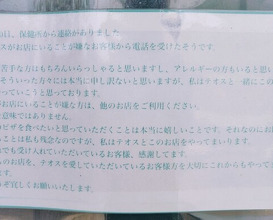 日、保健所から連絡がありました。
スがお店にいることが嫌なお客様から電話を受けたそうです。
苦手な方はもちろんいらっしゃると思いますし、アレルギーの方もいると思い
そういった方々には本当に申し訳ないと思いますが、私はテオスと一緒にこの
やっていこうと思っております。
がお店にいることが嫌な方は、他のお店をご利用ください。
な意味ではありません。
ピザを食べたいと思っていただくことは本当に嬉しいことです。それなのにお
ることは私も残念なのですが、私はテオスとこのお店をやってまいります。
でも受け入れていただいているお客様、感謝してます。
このお店を、テオスを愛していただいているお客様方を大切にこれからもやって
ます。
ぞ宜しくお願いいたします。